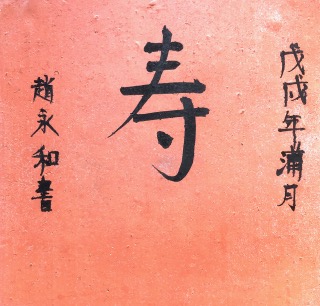 戊戌年蒲月
寿
趙永和書